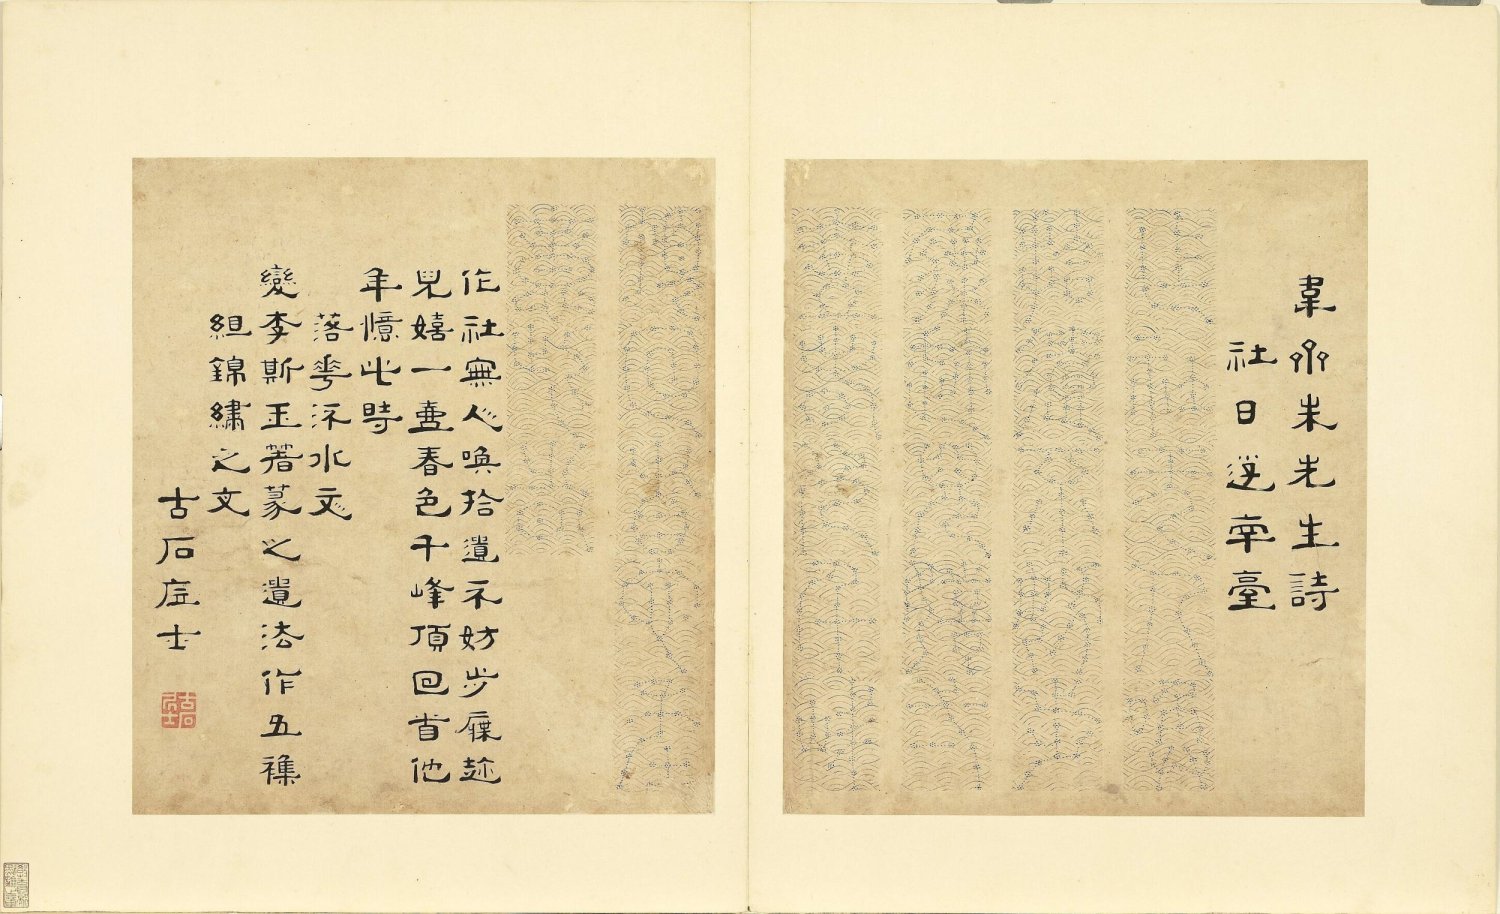 韋齊朱先生詩
社日遊南臺
作社無人喚拾遺不妨步屧趂
兒嬉一壺春色千峰頂回首他
年憶此時
落花流水文
變李斯玉箸篆之遺法作五襍
組錦繡之文
古石居士
古石居士